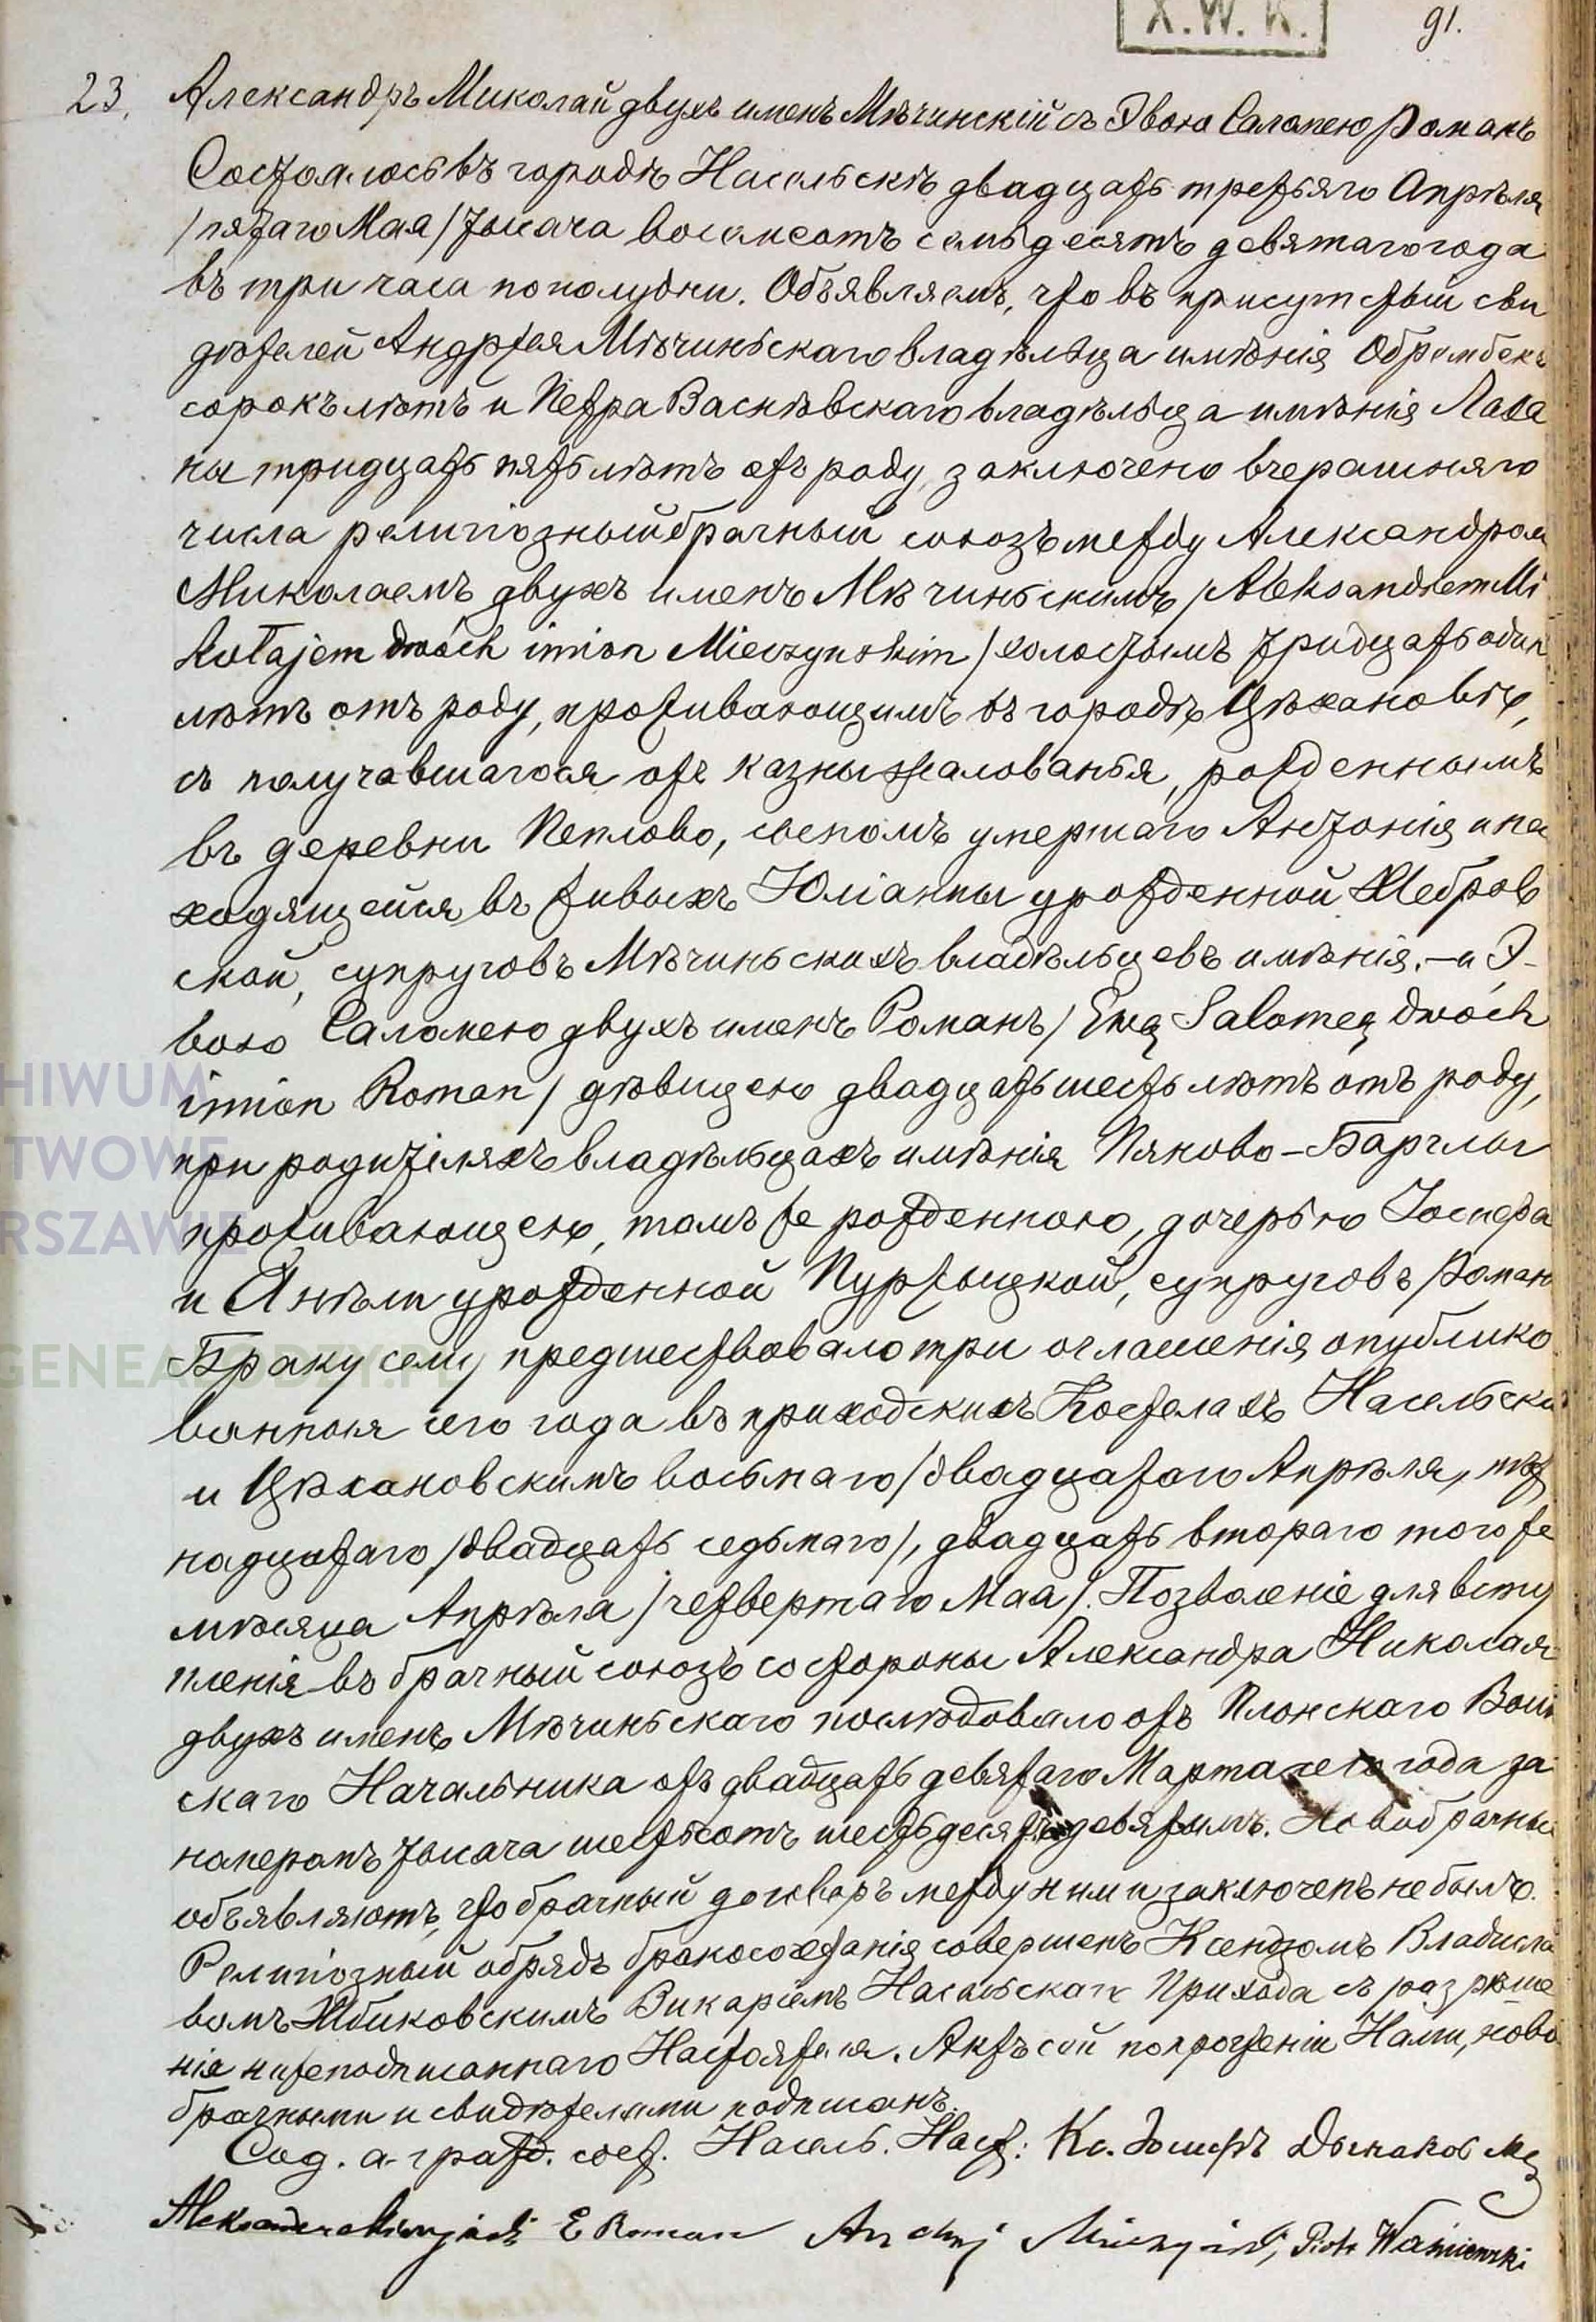 X. W. K.
91.
23. Александръ Миколай двухъ именъ Мѣчинскій съ Эвою Саломею Романъ
Состоялось въ городѣ Насельскѣ двадцать третьяго Апрѣля
/пятаго Мая/ тысяча восемсотъ семьдесятъ девятаго года
въ три часа пополудни. Объявляемъ, что въ присутствіи сви
дѣтелей Андрея Мѣчиньскаго владѣльца имѣнія Обрембекъ
сорокъ лѣтъ и Петра Васнѣвскаго владѣльца имѣнія
ны тридцать пять лѣтъ отъ роду, заключено вчерашняго
числа религіозный брачный союзъ между Александром
Миколаемъ двухъ именъ Мѣчиньскимъ /Aleksandrem Mi
kołajem dwóch imion Mieczynskim/ холостымъ тридцать один
лѣтъ отъ роду, проживающимъ въ городѣ Цѣхановѣ,
съ получавшагося отъ казны жалованья, рожденнымъ
въ деревни Пеплово, сыномъ умершаго Антонія и на
ходящейся въ живыхъ Юліанны урожденной Хмебров
ской, супруговъ Мѣчиньскихъ владѣльцевъ имѣнія, – и Э-
вою Саломею двухъ именъ Романъ /Ewą Salomeą dwóch
imion Roman/ дѣвицею двадцать шесть лѣтъ отъ роду,
при родителяхъ владѣльцахъ имѣнія Пяново-Барглы
проживающею, тамъ же рожденною, дочерью Іосифа
и Анѣли урожденной Пуржыцкой, супруговъ Роман
Браку сему предшествовало три оглашенія опублико
ванныя сего года въ приходскихъ Костелахъ Насельска
и Цѣхановскимъ восьмаго /двадцатаго Апрѣля, пят
надцатаго /двадцать седьмаго/, двадцать втораго того же
мѣсяца Апрѣля /четвертаго Мая/. Позволеніе для всту
пленія въ брачный союзъ со стороны Александра Николая
двухъ именъ Мѣчиньскаго послѣдовало отъ Плонскаго Воин
скаго Начальника отъ двадцать девятаго Марта сего года за
намеромъ тысяча шестьсотъ шестьдесятъ девятымъ. Новобрачные
объявляютъ, что брачный договоръ между ними заключенъ не былъ.
Религіозный обрядъ бракосочетанія совершенъ Ксендзомъ Владисла
вомъ Жбиковскимъ Викаріемъ Насельскаго Прихода съ разрѣше
нія нижеподписаннаго Настоятеля. Актъ сей по прочтеніи Нами, ново
брачными и свидѣтелями подписанъ.
Сод. а. гражд. сост. Насель. Наст: Кс. Іосифъ
Aleksander Mieczyński E Roman Andrzej Mieczyński, Piotr Waśniewski